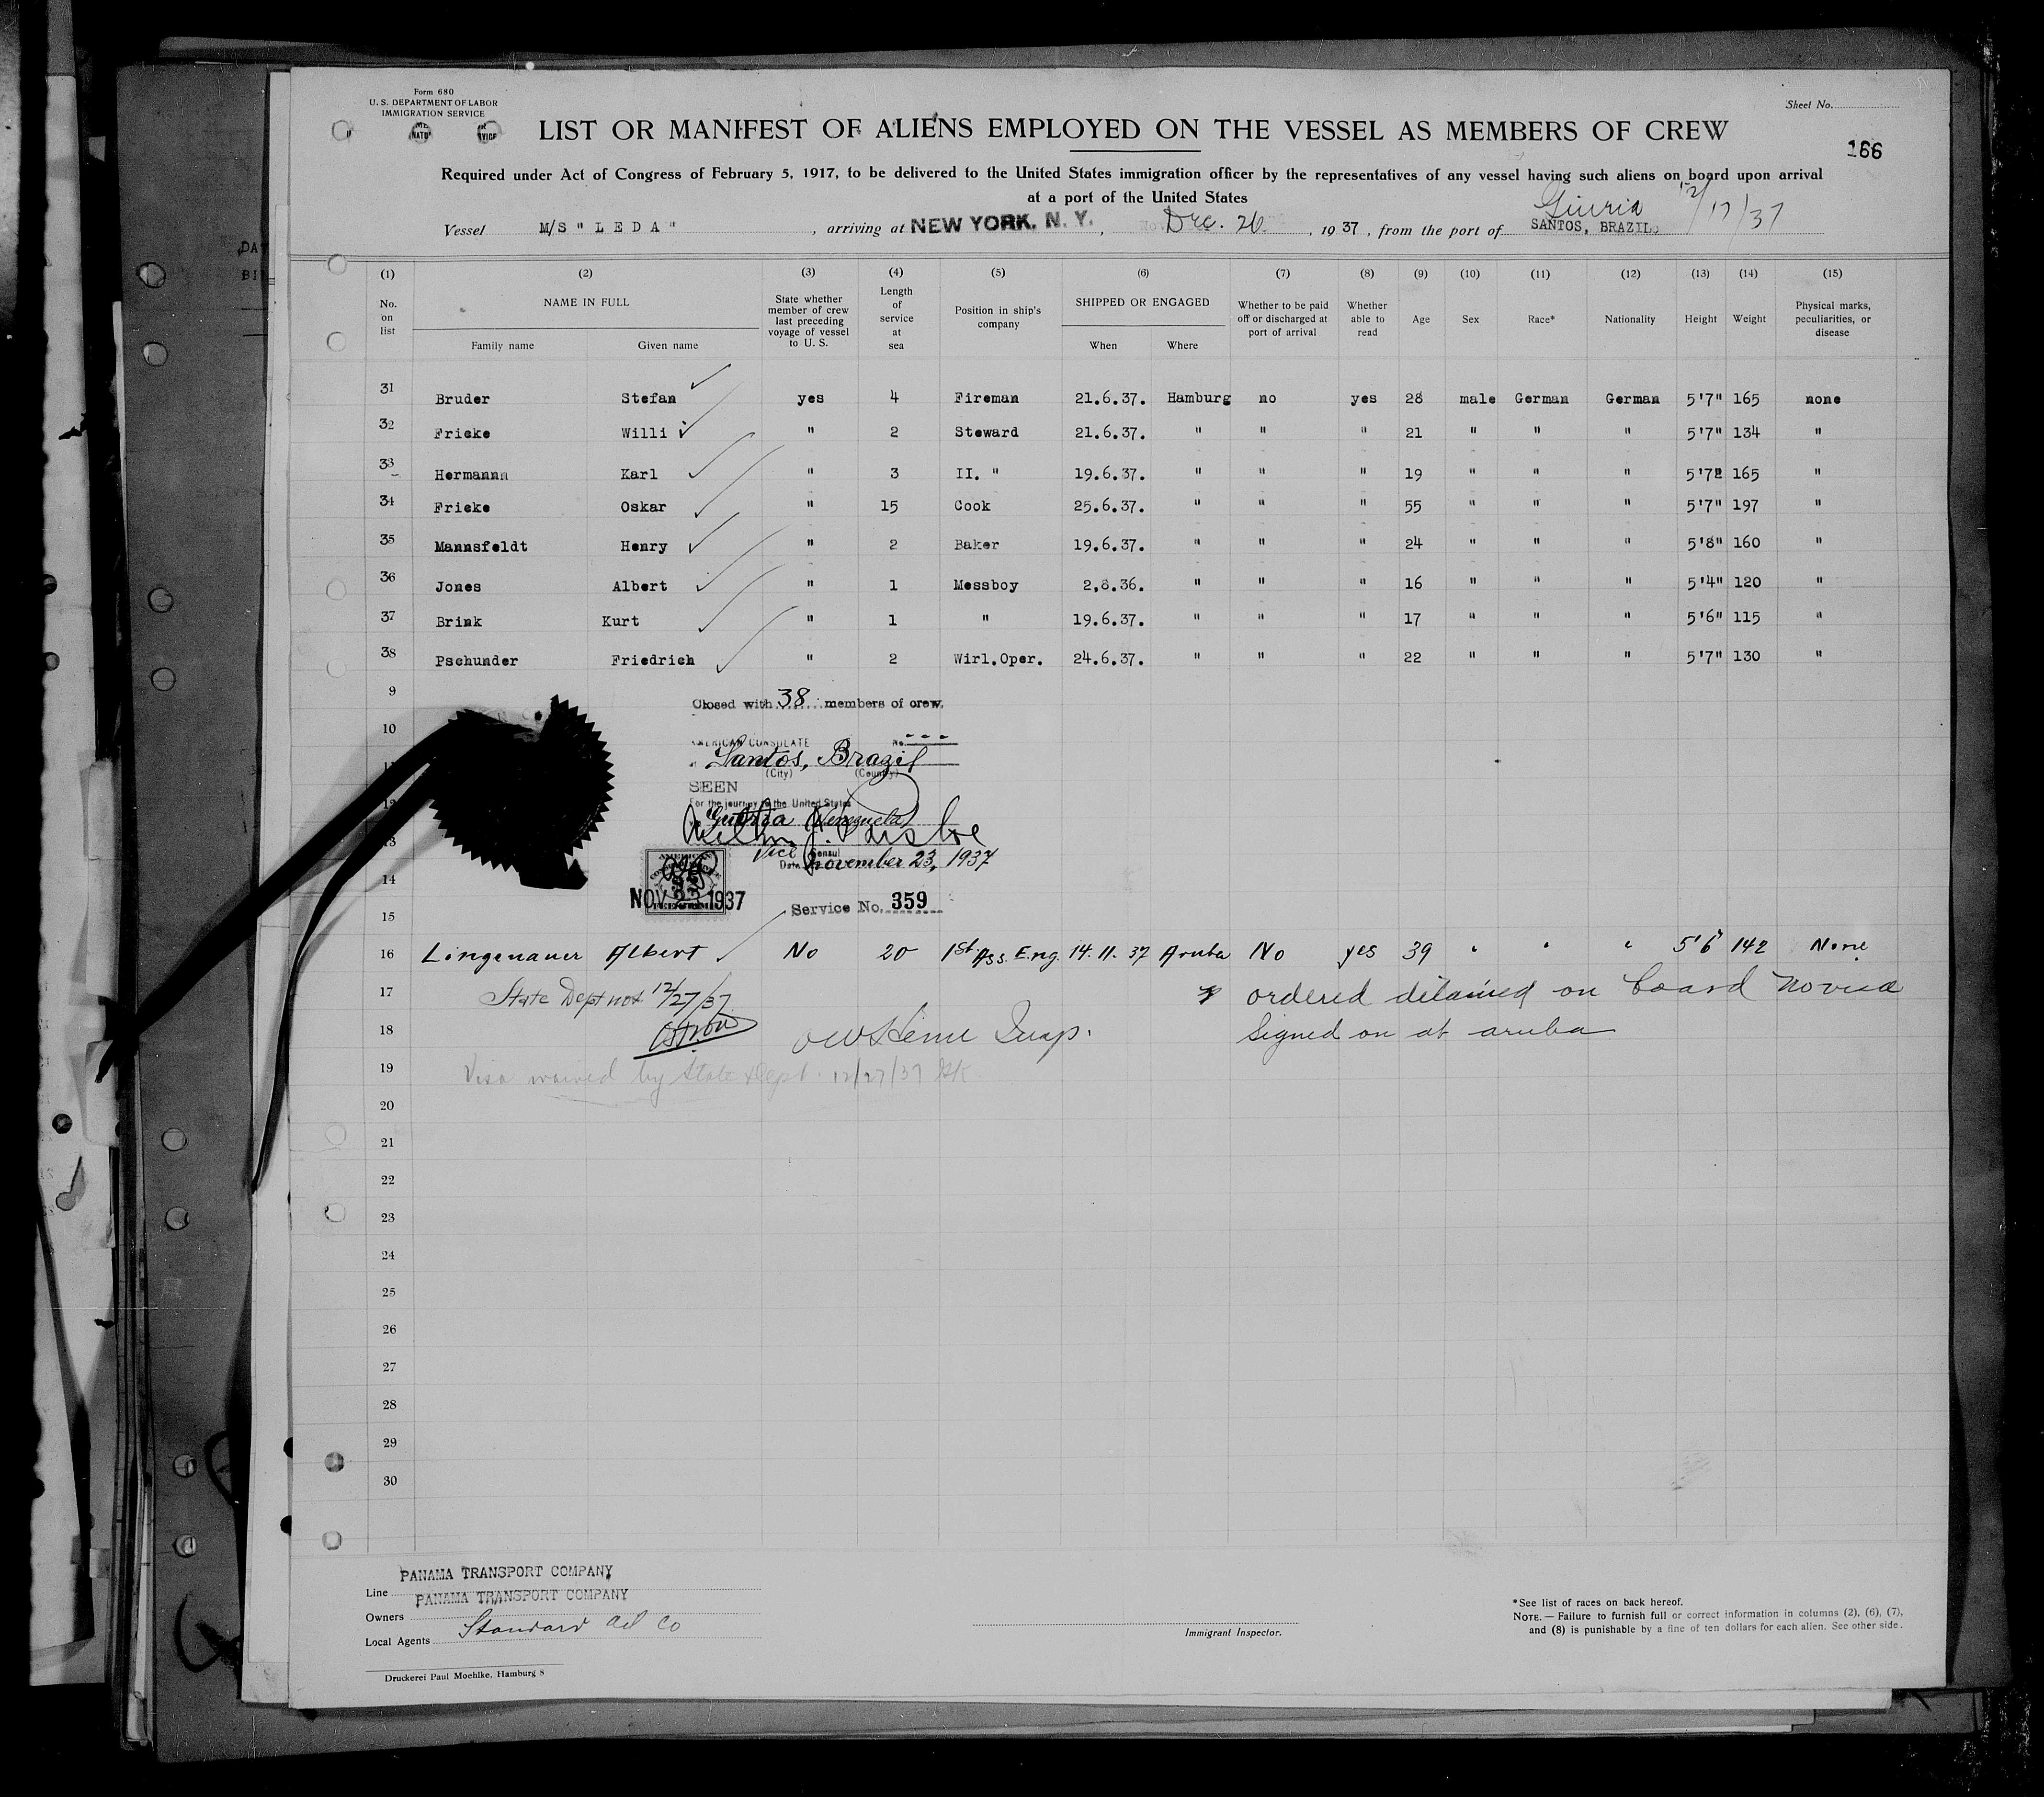 Form 680
U. S. DEPARTMENT OF LABOR
IMMIGRATION SERVICE
Sheet No.
LIST OR MANIFEST OF ALIENS EMPLOYED ON THE VESSEL AS MEMBERS OF CREW
166
Required under Act of Congress of February 5, 1917, to be delivered to the United States immigration officer by the representatives of any vessel having such aliens on board upon arrival
at a port of the United States
Guiria 12/17/37
Vessel M/S "LEDA", arriving at NEW YORK, N. Y., Dec. 26, 1937, from the port of SANTOS, BRAZIL.
(1) (2) (3) (4) (5) (6) (7) (8) (9) (10) (11) (12) (13) (14) (15)
No. on list NAME IN FULL Family name Given name State whether member of crew last preceding voyage of vessel to U. S. Length of service at sea Position in ship's company SHIPPED OR ENGAGED When Where Whether to be paid off or discharged at port of arrival Whether able to read Age Sex Race* Nationality Height Weight Physical marks, peculiarities, or disease
31 Bruder Stefan yes 4 Fireman 21.6.37. Hamburg no yes 28 male German German 5'7" 165 none
32 Fricke Willi " 2 Steward 21.6.37. " " " 21 " " " 5'7" 134 "
33 Hermann Karl " 3 II. " 19.6.37. " " " 19 " " " 5'7" 165 "
34 Fricke Oskar " 15 Cook 25.6.37. " " " 55 " " " 5'7" 197 "
35 Mannsfeldt Henry " 2 Baker 19.6.37. " " " 24 " " " 5'8" 160 "
36 Jones Albert " 1 Messboy 2,8.36. " " " 16 " " " 5'4" 120 "
37 Brink Kurt " 1 " 19.6.37. " " " 17 " " " 5'6" 115 "
38 Pschunder Friedrich " 2 Wirl.Oper. 24.6.37. " " " 22 " " " 5'7" 130 "
9
Closed with 38 members of crew.
10
AMERICAN CONSULATE No. ---
11
Santos, Brazil
(City) (Country)
SEEN
12
For the journey to the United States
Guiria Venezuela
13
Vice Consul
Date November 23, 1937
14
NOV 23 1937
Service No. 359
15
16 Lingenauer Albert No 20 1st Ass. Eng. 14.11.37 Aruba No yes 39 " " " 5'6" 142 None
17 State Dept not 12/27/37 ordered detained on board no visa
18 Insp. Signed on at aruba
19 Visa waived by State Dept. 12/27/37
20
21
22
23
24
25
26
27
28
29
30
PANAMA TRANSPORT COMPANY
Line
PANAMA TRANSPORT COMPANY
Owners
Local Agents Standard Oil Co
Immigrant Inspector.
*See list of races on back hereof.
NOTE.—Failure to furnish full or correct information in columns (2), (6), (7),
and (8) is punishable by a fine of ten dollars for each alien. See other side.
Druckerei Paul Moehlke, Hamburg 8